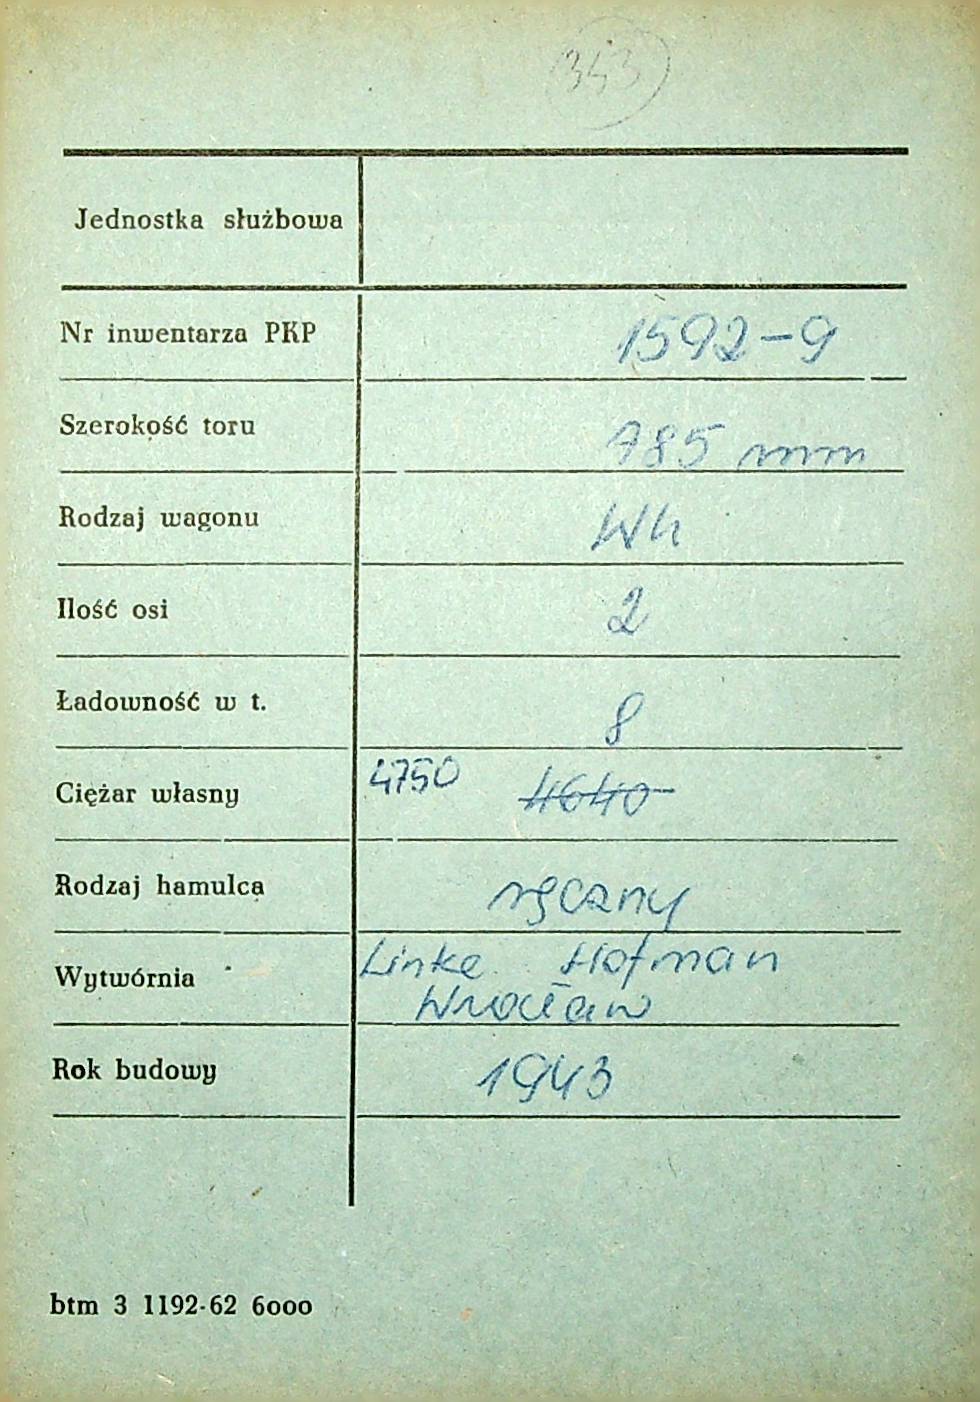 343
Jednostka służbowa
Nr inwentarza PKP 1592-9
Szerokość toru 785 mm
Rodzaj wagonu Wh
Ilość osi 2
Ładowność w t. 8
Ciężar własny 4750 4640
Rodzaj hamulca ręczny
Wytwórnia Linke Hofman
Wrocław
Rok budowy 1943
btm 3 1192-62 6000